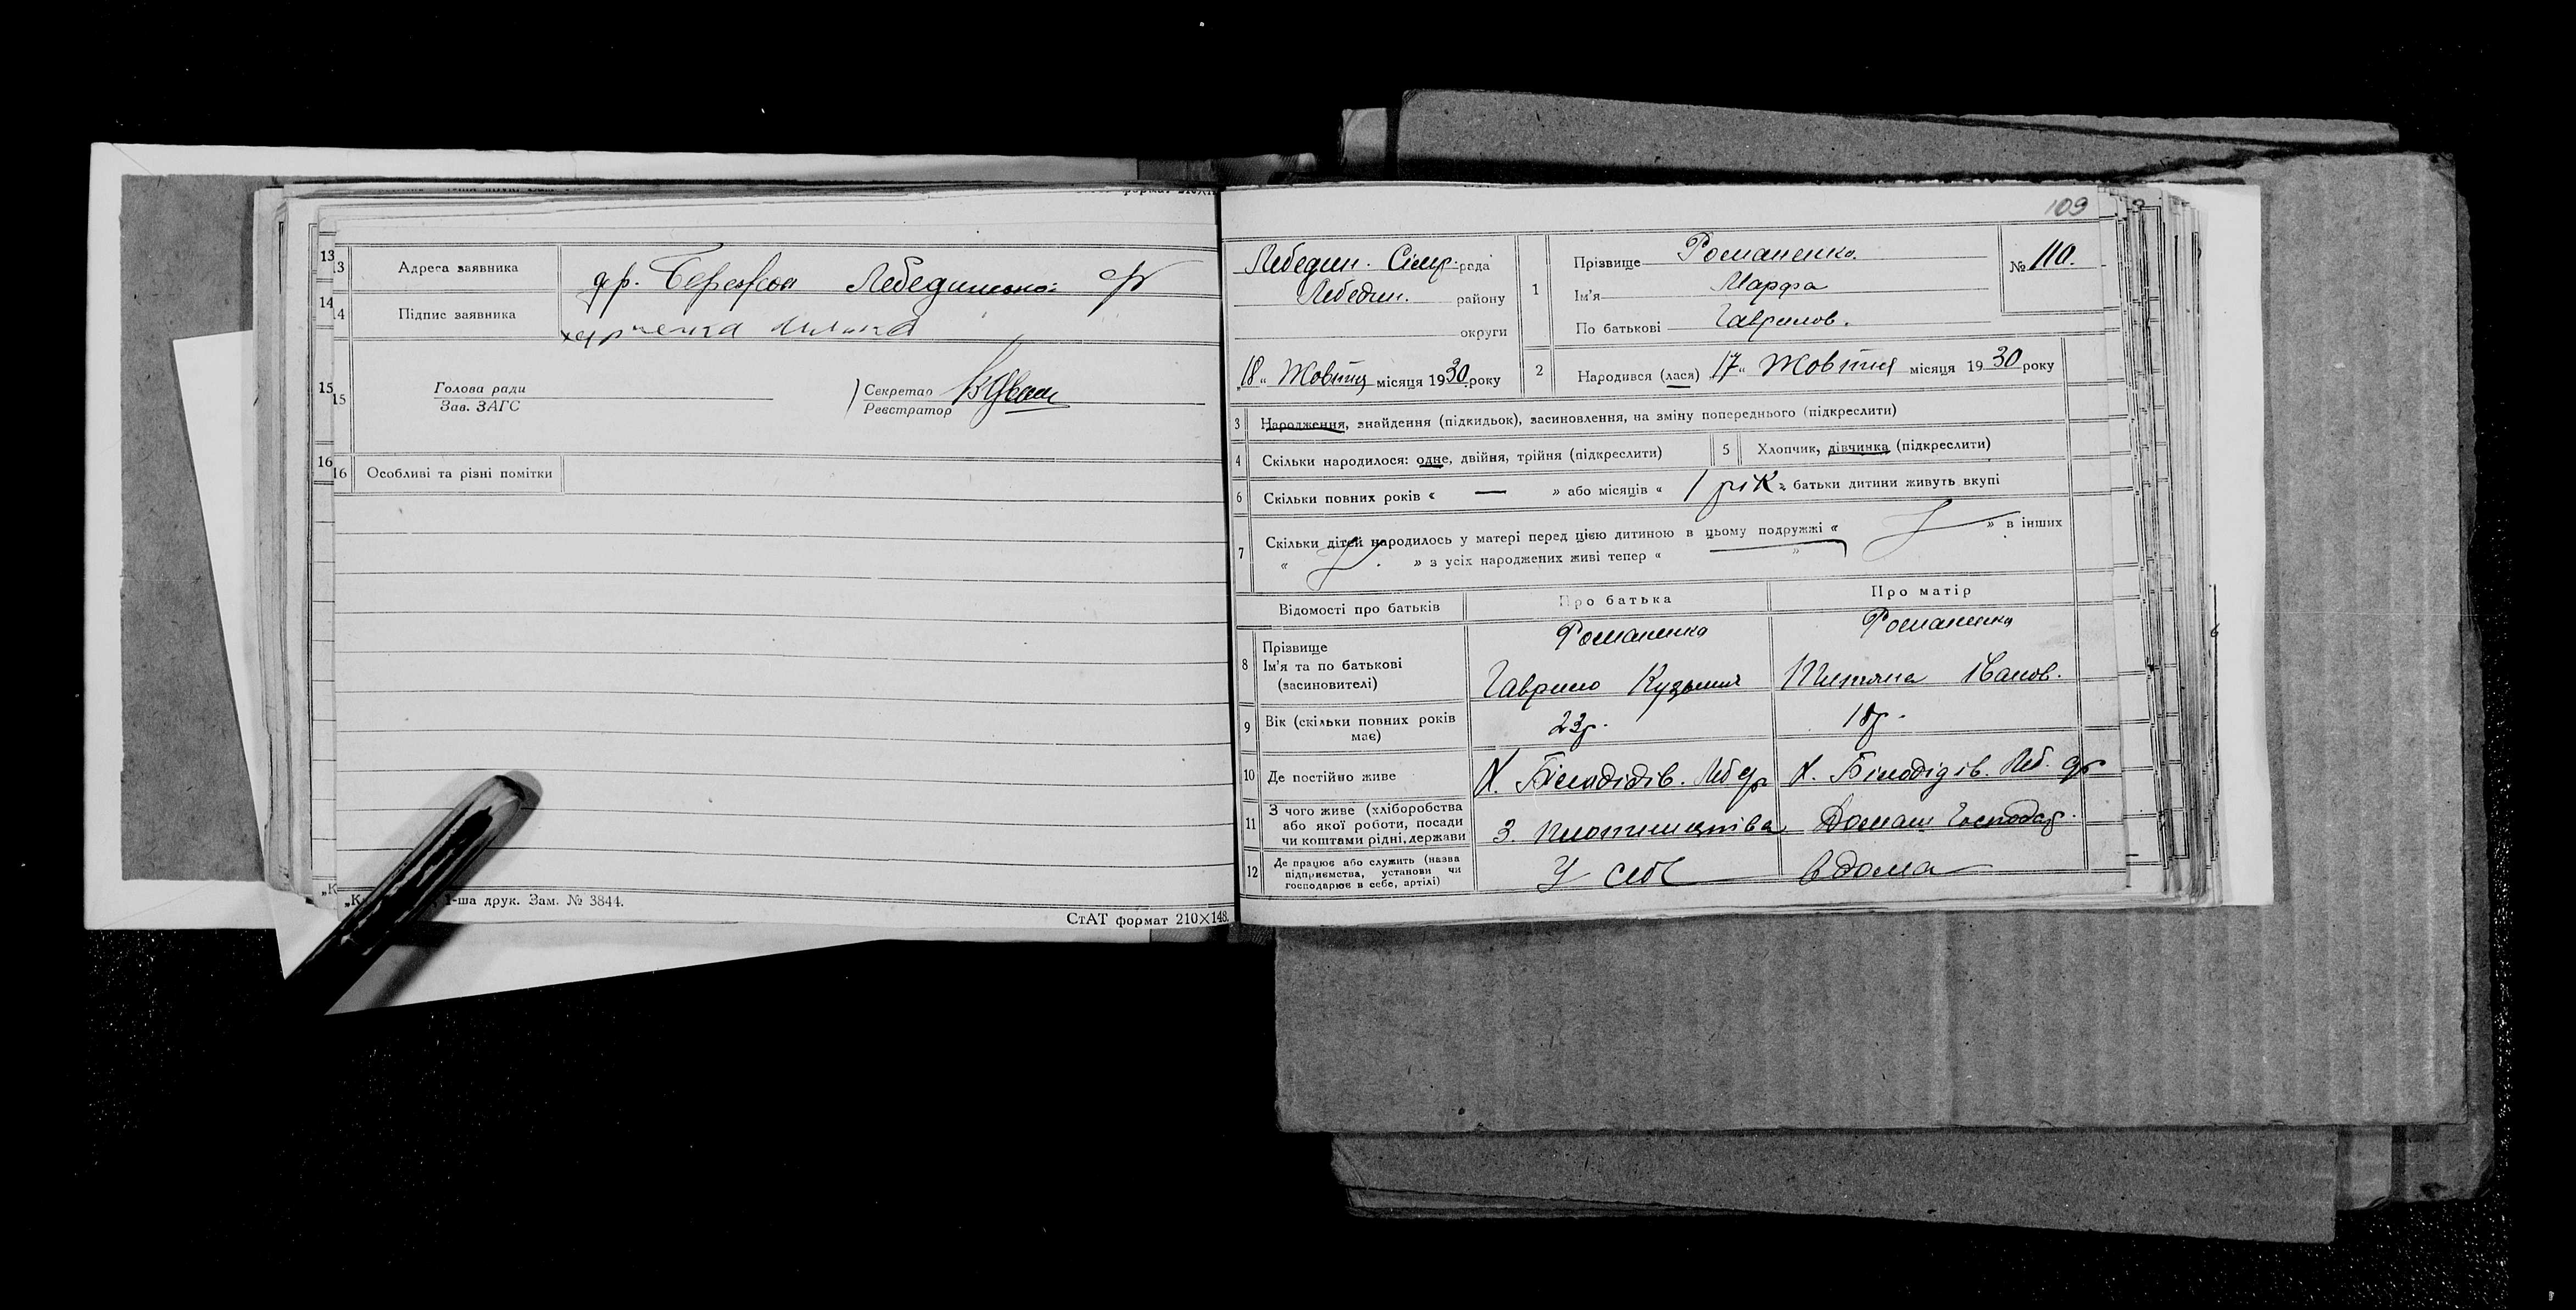 формат 210×148
13
13
Адреса заявника
Лебединської
14
14
Підпис заявника
харченка
15
15
Голова ради
Зав. ЗАГС
Секретар
Реєстратор
16
16
Особливі та різні помітки
„К
„К 1-ша друк. Зам. № 3844.
СтАТ формат 210×148.
109
Лебедин. рада
Лебедин. району
округи
„18“ Жовтня місяця 1930 року
1
Прізвище Романенко
Ім'я Марфа
По батькові Гаврилов.
№ 110.
2
Народився (лася) „17“ Жовтня місяця 1930 року
3 Народження, знайдення (підкидьок), засиновлення, на зміну попереднього (підкреслити)
4 Скільки народилося: одне, двійня, трійня (підкреслити)
5 Хлопчик, дівчинка (підкреслити)
6 Скільки повних років « — » або місяців « 1 рік » батьки дитини живуть вкупі
7 Скільки дітей народилось у матері перед цією дитиною в цьому подружжі « » в інших
« » з усіх народжених живі тепер « »
Відомості про батьків
Про батька
Про матір
8
Прізвище
Ім'я та по батькові
(засиновителі)
Романенко
Гаврило Кузьмич
Романенко
Тетяна Іванов.
9
Вік (скільки повних років має)
23р.
18р.
10 Де постійно живе
Х. Білодідів. Леб. р
Х. Білодідів. Леб. р
11
З чого живе (хліборобства
або якої роботи, посади
чи коштами рідні, держави
З
Домаш Господар.
12
Де працює або служить (назва
підприємства, установи чи
господарює в себе, артілі)
У себе
вдома